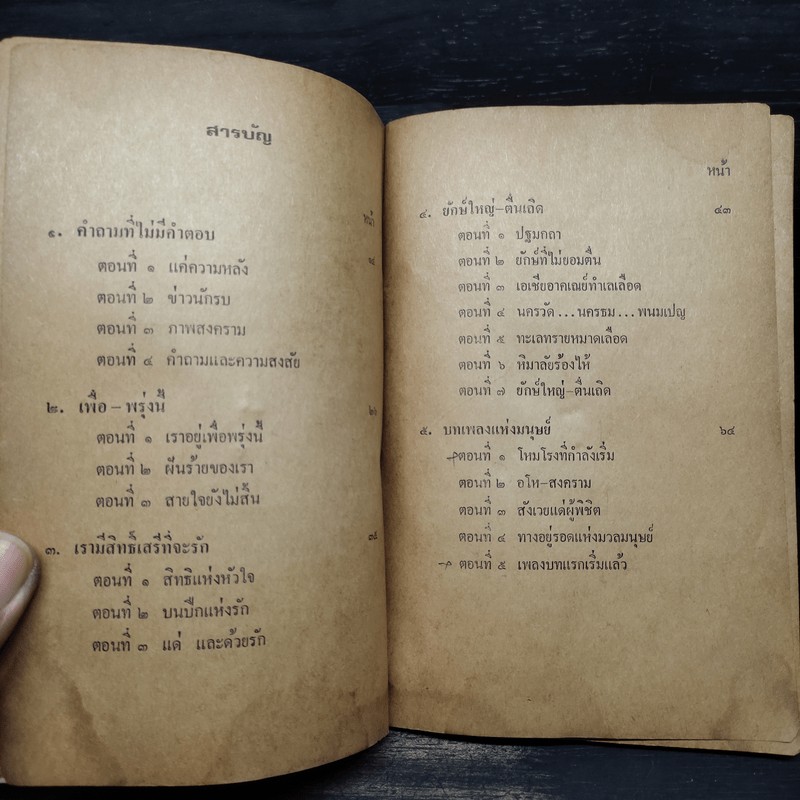 สารบัญ
หน้า
๑. คำถามที่ไม่มีคำตอบ
ตอนที่ ๑ แค่ความหลัง
ตอนที่ ๒ ข่าวนักรบ
ตอนที่ ๓ ภาพสงคราม
ตอนที่ ๔ คำถามและความสงสัย
๒. เพื่อ – พรุ่งนี้
ตอนที่ ๑ เราอยู่เพื่อพรุ่งนี้
ตอนที่ ๒ ฝันร้ายของเรา
ตอนที่ ๓ สายใจยังไม่สิ้น
๓. เรามีสิทธิ์เสรีที่จะรัก
ตอนที่ ๑ สิทธิแห่งหัวใจ
ตอนที่ ๒ บนปีกแห่งรัก
ตอนที่ ๓ แด่ และด้วยรัก
หน้า
๔. ยักษ์ใหญ่–ตื่นเถิด ๔๓
ตอนที่ ๑ ปฐมกถา
ตอนที่ ๒ ยักษ์ที่ไม่ยอมตื่น
ตอนที่ ๓ เอเซียอาคเณย์ทำเลเลือด
ตอนที่ ๔ นครวัด ... นครธม ... พนมเปญ
ตอนที่ ๕ ทะเลทรายหมาดเลือด
ตอนที่ ๖ หิมาลัยร้องไห้
ตอนที่ ๗ ยักษ์ใหญ่–ตื่นเถิด
๕. บทเพลงแห่งมนุษย์ ๖๔
ตอนที่ ๑ โหมโรงที่กำลังเริ่ม
ตอนที่ ๒ อโห–สงคราม
ตอนที่ ๓ สังเวยแด่ผู้พิชิต
ตอนที่ ๔ ทางอยู่รอดแห่งมวลมนุษย์
ตอนที่ ๕ เพลงบทแรกเริ่มแล้ว